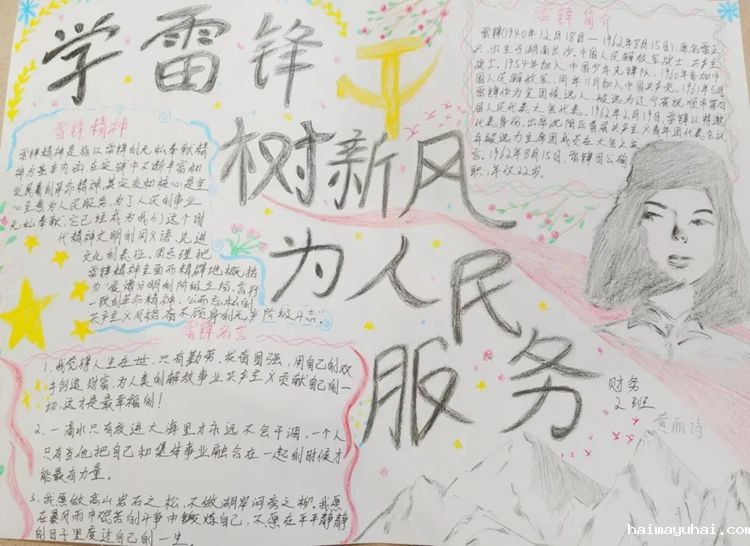 学雷锋
树新风
为人民
服务
雷锋简介
雷锋(1940年12月18日—1962年8月15日),原名雷正
兴,出生于湖南长沙,中国人民解放军战士,共产主义
战士,1954年加入中国少年先锋队,1960年参加中
国人民解放军,同年11月加入中国共产党,1961年5月
雷锋作为主团候选人,被选为辽宁省抚顺市第四
届人民代表大会代表。1962年2月19日,雷锋以特邀
代表身份,出席沈阳军区首届共产主义青年团代表会议
并被选为主席团成员在大会上发
言。1962年8月15日,雷锋因公殉
职,年仅22岁。
雷锋精神
雷锋精神是指以雷锋的无私奉献精
神为基本内涵,在实践中不断丰富和
发展着的革命精神,其实质和核心是全
心全意为人民服务,为了人民的事业
无私奉献,它已经成为我们这个时
代精神文明的同义语、先进
文化的表征。周总理把
雷锋精神全面而精辟地概括
为"爱憎分明的阶级立场、言行
一致的革命精神、公而忘私的
共产主义风格、奋不顾身的无产阶级斗志"。
雷锋名言
1、我觉得人生在世,只有勤劳、发奋图强,用自己的双
手创造财富,为人类的解放事业共产主义贡献自己的一
切,这才是最幸福的!
2、一滴水只有放进大海里才永远不会干涸,一个人
只有当他把自己和集体事业融合在一起的时候才
能最有力量。
3、我愿做高山岩石之松,不做湖岸河旁之柳。我愿
在暴风雨中艰苦的斗争中锻炼自己,不愿在平平静静
的日子里度过自己的一生。
财务
2班
黄丽诗
haimayuhai.com